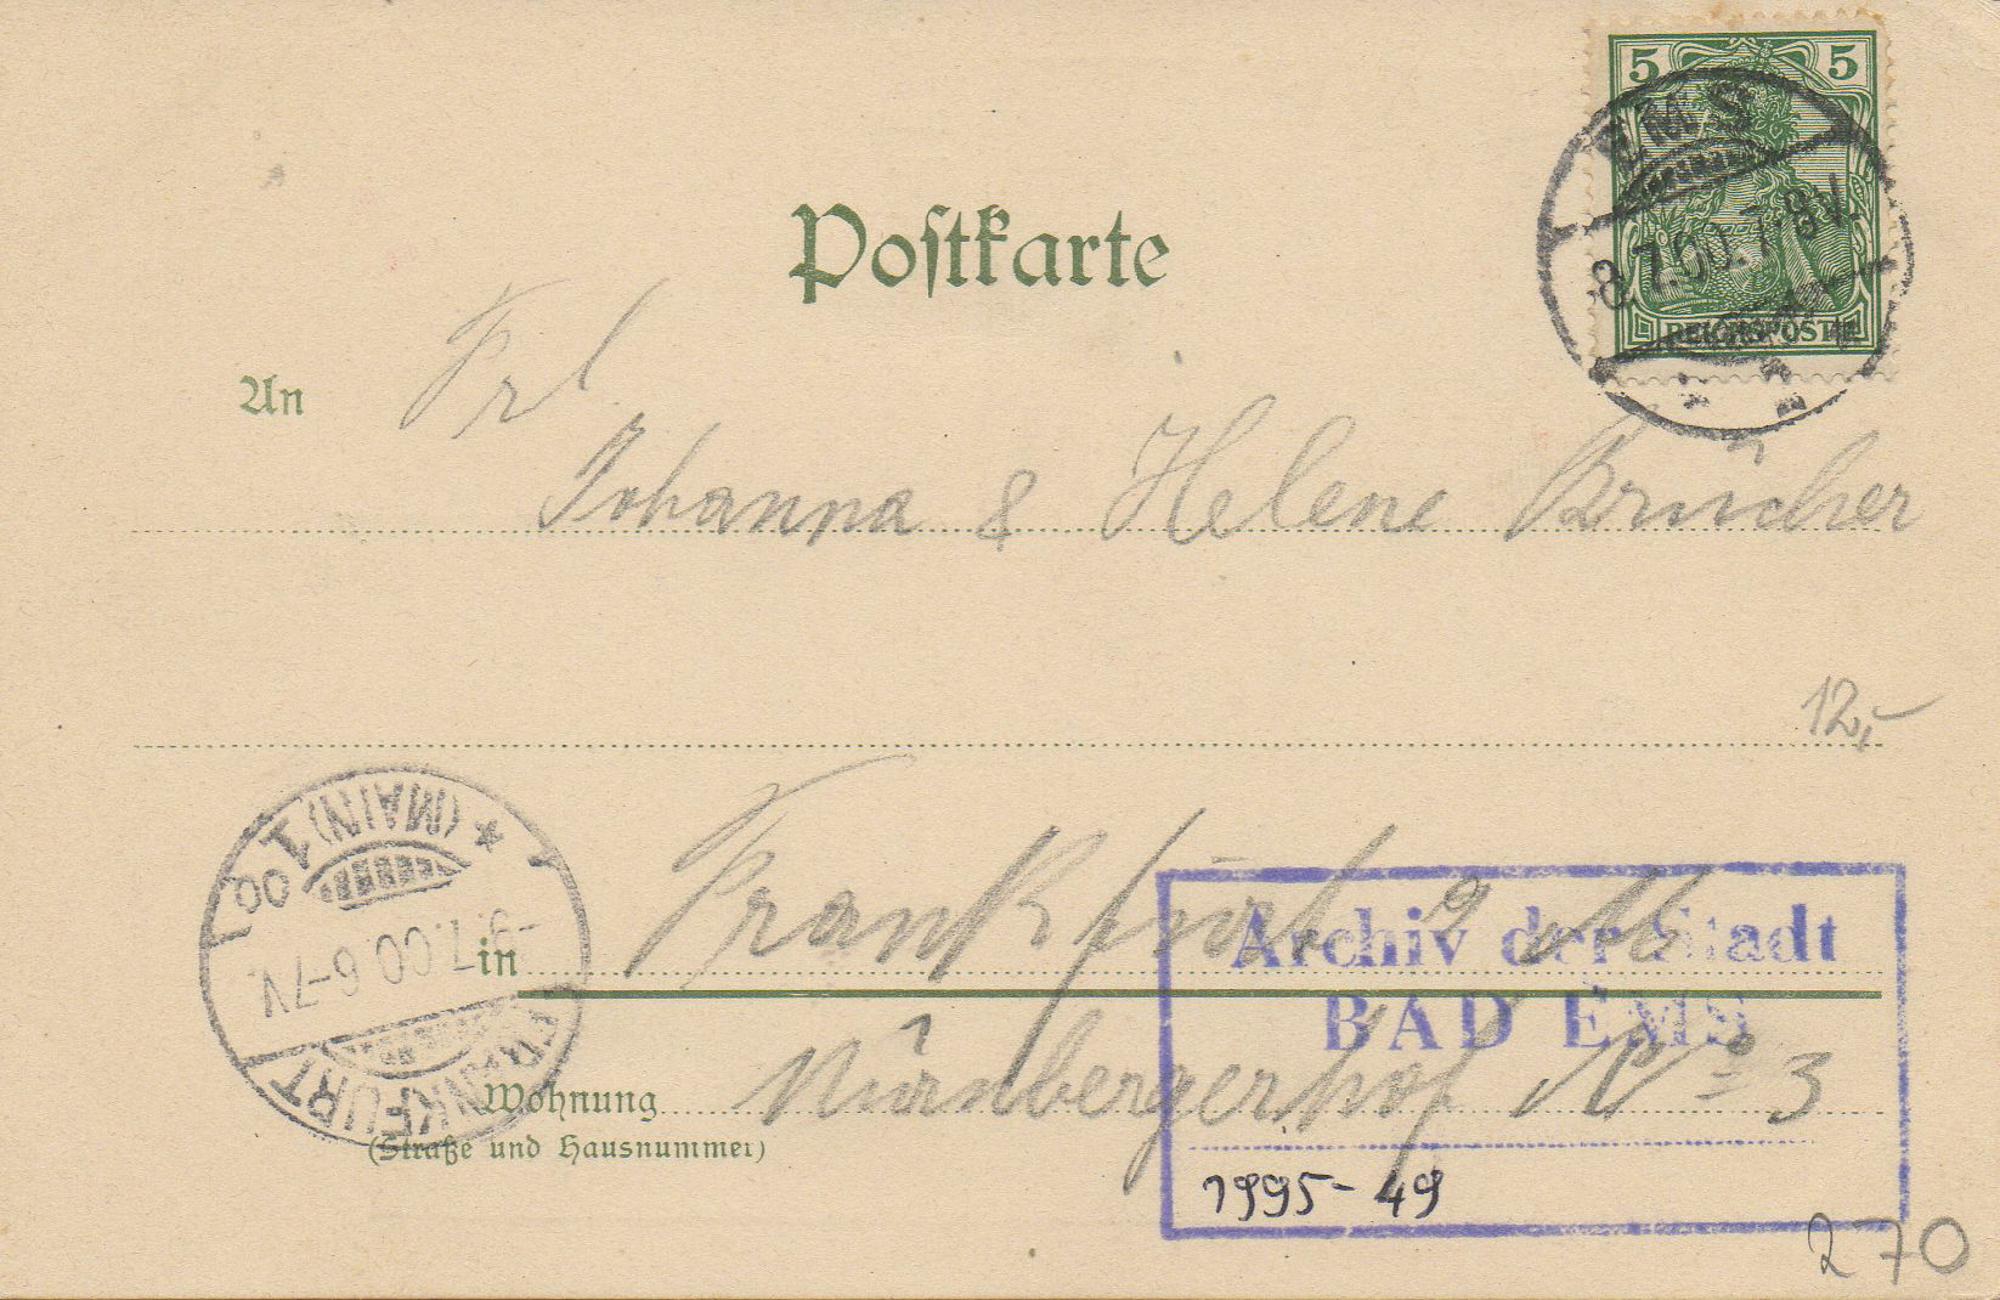 5 5
EMS
8.7.00.7-8V.
REICHSPOST
Postkarte
An Frl
Johanna & Helene Brücher
12,-
FRANKFURT (MAIN) 1
-9.7.00.6-7V.
in Frankfurt a M
Archiv der Stadt
BAD EMS
Wohnung Nürnbergerhof No 3
(Straße und Hausnummer)
1995-49
270